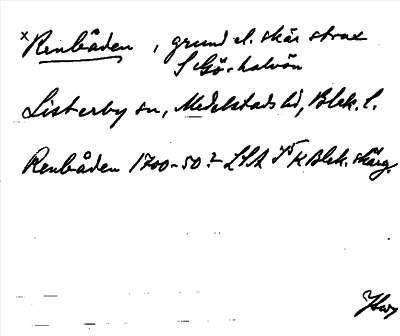 x Renbåden, grund el. skär strax
S Gö-halvön
Listerby sn, Medelstads hd, Blek. l.
Renbåden 1700-50? LSA K Blek. skärg.